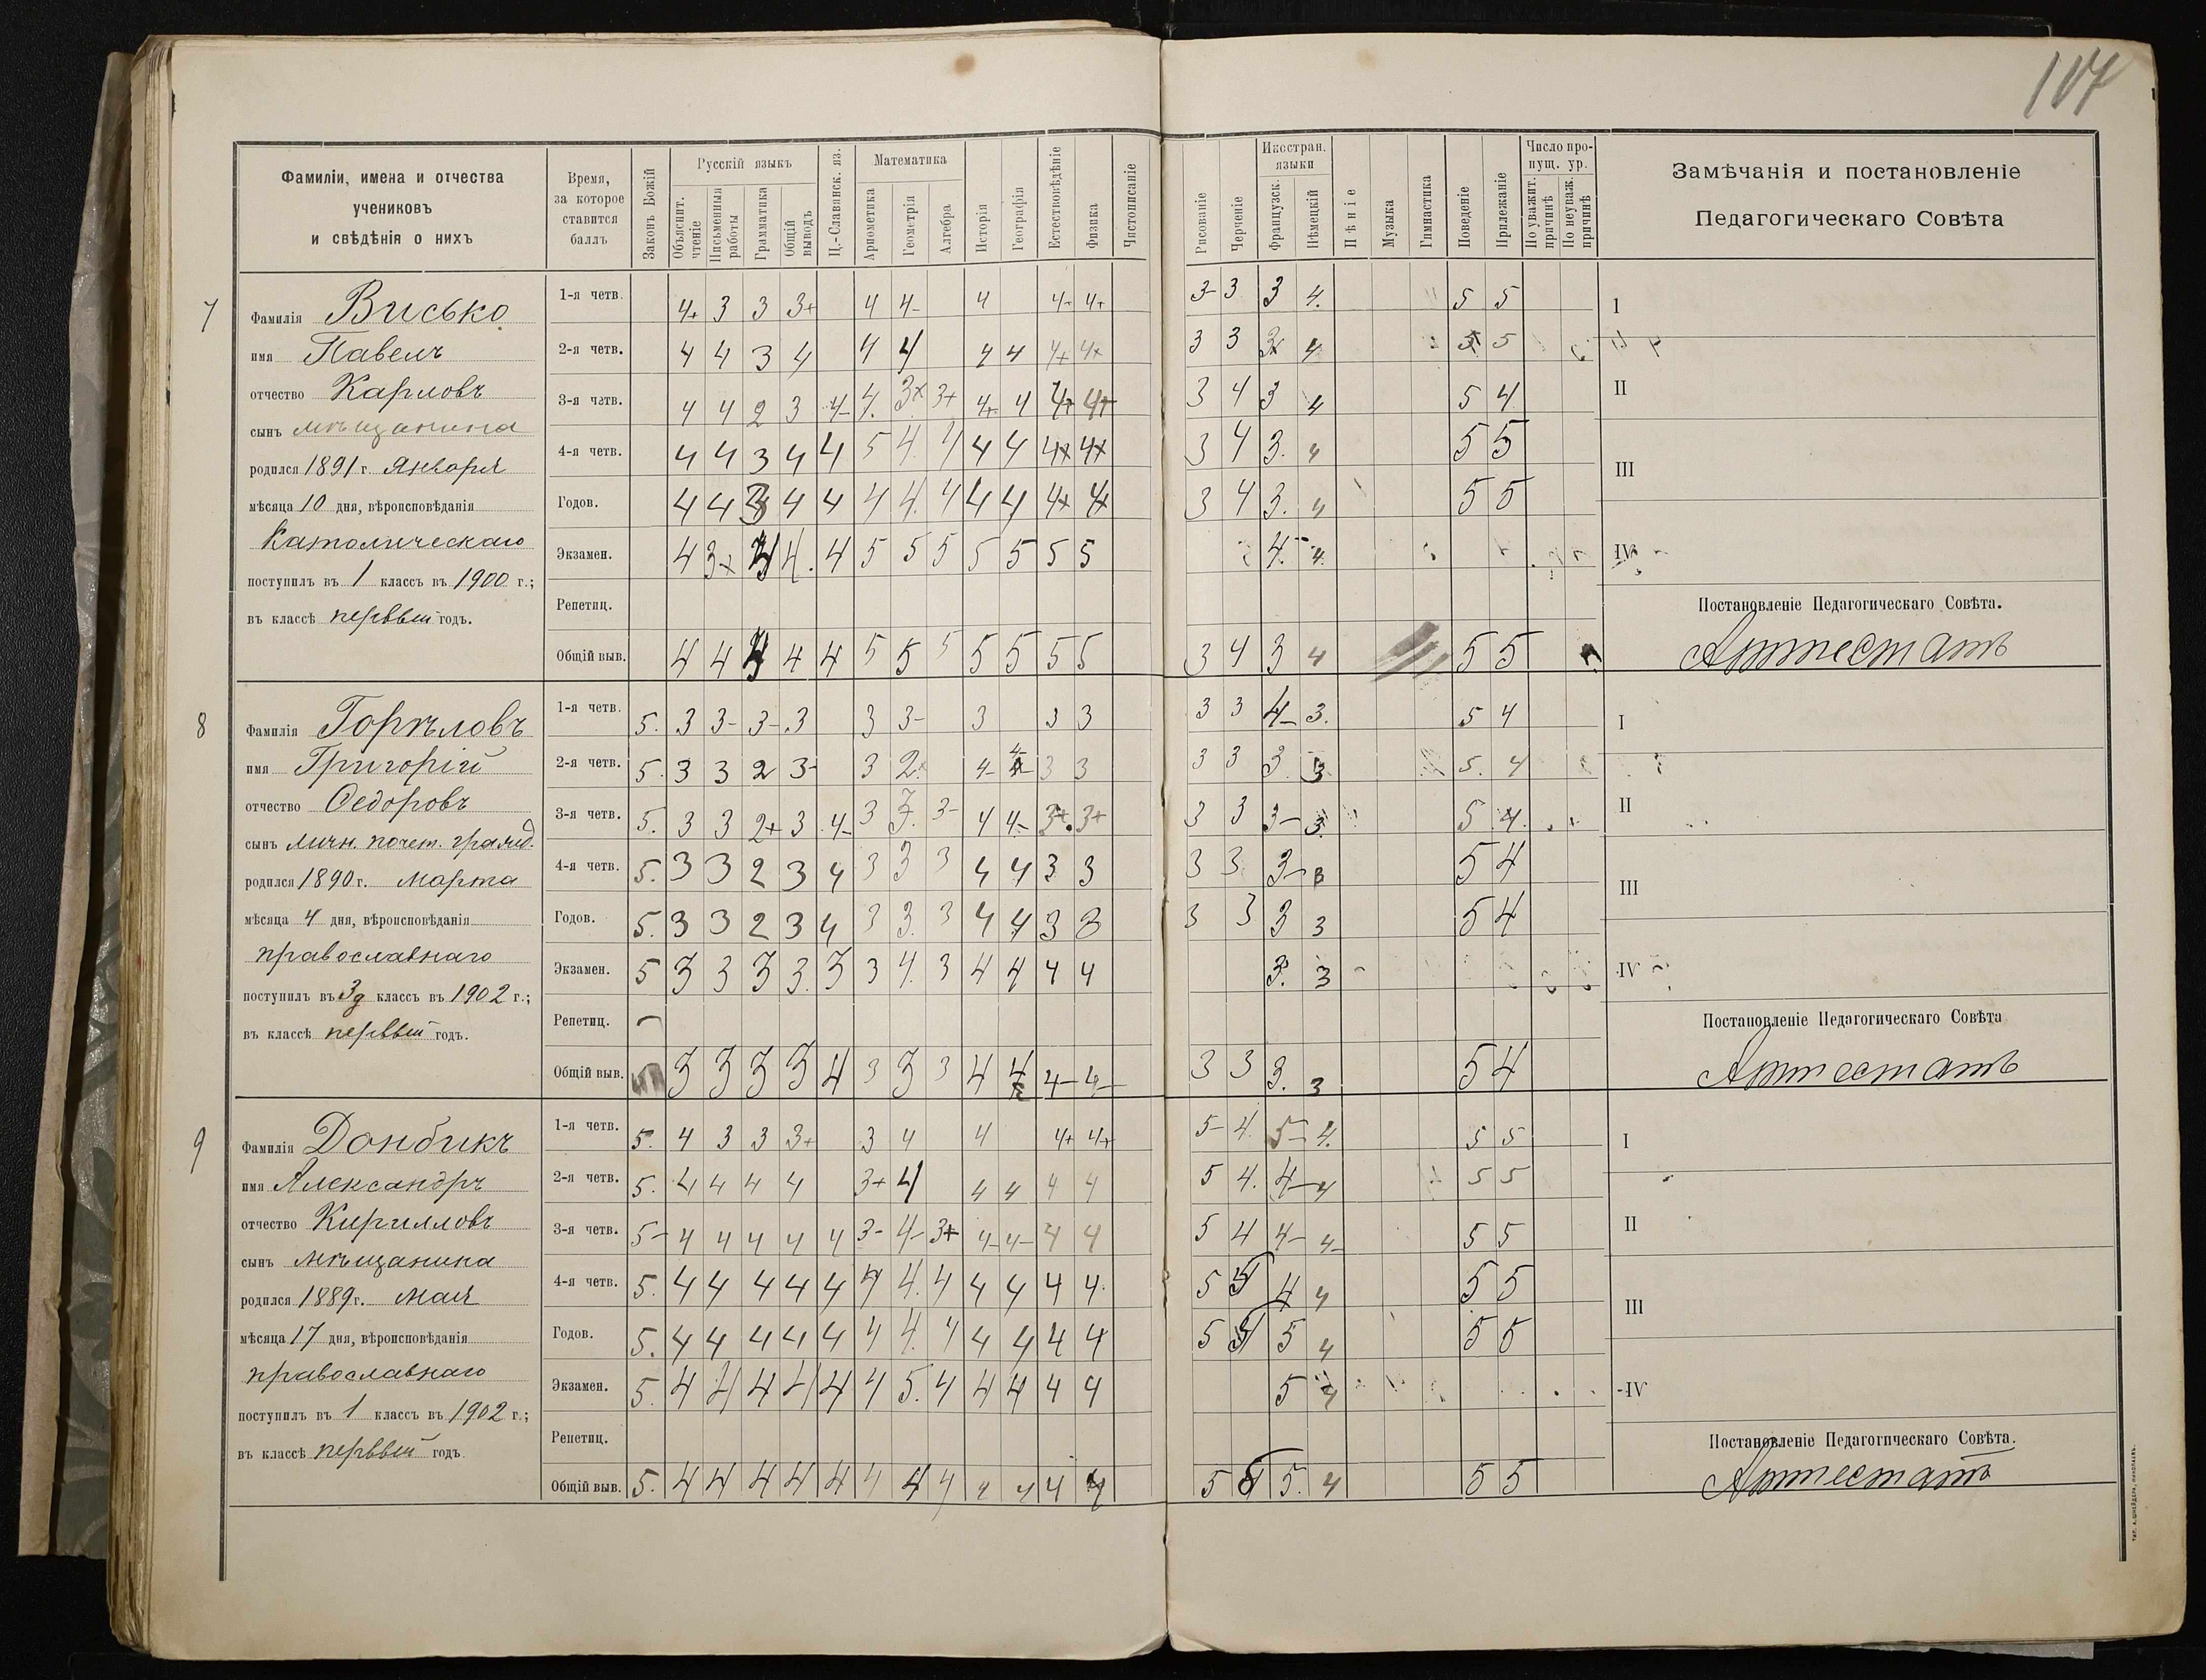 107
Фамиліи, имена и отчества
учениковъ
и свѣдѣнія о нихъ
Время,
за которое
ставится
баллъ
Законъ Божій
Русскій языкъ
Объяснит. чтеніе
Письменныя работы
Грамматика
Общій выводъ
Ц.-Славянск. яз.
Математика
Ариѳметика
Геометрія
Алгебра
Исторія
Географія
Естествовѣдѣніе
Физика
Чистописаніе
Рисованіе
Черченіе
Иностран. языки
Французск.
Нѣмецкій
Пѣніе
Музыка
Гимнастика
Поведеніе
Прилежаніе
Число пропущ. ур.
По уважит. причинѣ
По неуваж. причинѣ
Замѣчанія и постановленіе
Педагогическаго Совѣта
7
Фамилія Висько
имя Павелъ
отчество Карловъ
сынъ мѣщанина
родился 1891 г. Января
мѣсяца 10 дня, вѣроисповѣданія
Католическаго
поступилъ въ 1 классъ въ 1900 г.;
въ классѣ первый годъ.
1-я четв. 4+ 3 3 3+ 4 4- 4 4+ 4+ 3- 3 3 4. 5 5
2-я четв. 4 4 3 4 4 4 4 4 4+ 4+ 3 3 4 5 5
3-я четв. 4 4 2 3 4- 4. 3+ 4+ 4 4+ 4+ 3 4 3 4 5 4
4-я четв. 4 4 3 4 4 5 4. 4 4 4 4+ 4+ 3 4 3. 4 5 5
Годов. 4 4 3 4 4 4 4. 4 4 4 4+ 4+ 3 4 3. 4 5 5
Экзамен. 4 3+ 4. 4 5 5 5 5 5 5 5 4. 4
Репетиц.
Общій выв. 4 4 4 4 5 5 5 5 5 5 5 3 4 3 4 5 5
I
II
III
IV
Постановленіе Педагогическаго Совѣта.
Аттестатъ
8
Фамилія Горѣловъ
имя Григорій
отчество Ѳедоровъ
сынъ личн. почет. гражд.
родился 1890 г. Марта
мѣсяца 4 дня, вѣроисповѣданія
православнаго
поступилъ въ 3д классъ въ 1902 г.;
въ классѣ первый годъ.
1-я четв. 5. 3 3- 3- 3 3 3- 3 3 3 3 3 4- 3. 5 4
2-я четв. 5. 3 3 2 3- 3 2 4- 3 3 3 3 3. 3 5. 4
3-я четв. 5. 3 3 2+ 3 4- 3 3. 3- 4 4- 3+ 3+ 3 3 3- 3 5 4.
4-я четв. 5. 3 3 2 3 4 3 3 3 4 4 3 3 3 3 3- 3 5 4
Годов. 5. 3 3 2 3 4 3 3. 3 4 4 3 3 3 3 3 3 5 4
Экзамен. 5 3 3 3 3. 3 3 4. 3 4 4 4 4 3. 3
Репетиц.
Общій выв. 3 3 3 3 4 3 3 3 4 4 4- 4- 3 3 3. 3 5 4
I
II
III
IV
Постановленіе Педагогическаго Совѣта
Аттестатъ
9
Фамилія Донбикъ
имя Александръ
отчество Кирилловъ
сынъ мѣщанина
родился 1889 г. Мая
мѣсяца 17 дня, вѣроисповѣданія
православнаго
поступилъ въ 1 классъ въ 1902 г.;
въ классѣ первый годъ.
1-я четв. 5. 4 3 3 3+ 3 4 4 4+ 4+ 5- 4. 5- 4. 5 5
2-я четв. 5. 4 4 4 4 3+ 4 4 4 4 4 5 4. 4- 4 5 5
3-я четв. 5- 4 4 4 4 4 3- 4- 3+ 4- 4- 4 4 5 4 4- 4- 5 5
4-я четв. 5. 4 4 4 4 4 4 4. 4 4 4 4 4. 5 5 4 4 5 5
Годов. 5. 4 4 4 4 4 4 4. 4 4 4 4 4 5 5 5 4 5 5
Экзамен. 5. 4 4 4 4 4 4 5. 4 4 4 4 4 5 4
Репетиц.
Общій выв. 5. 4 4 4 4 4 4 4 4 4 4 4 4 5 5 5. 4 5 5
I
II
III
IV
Постановленіе Педагогическаго Совѣта.
Аттестатъ